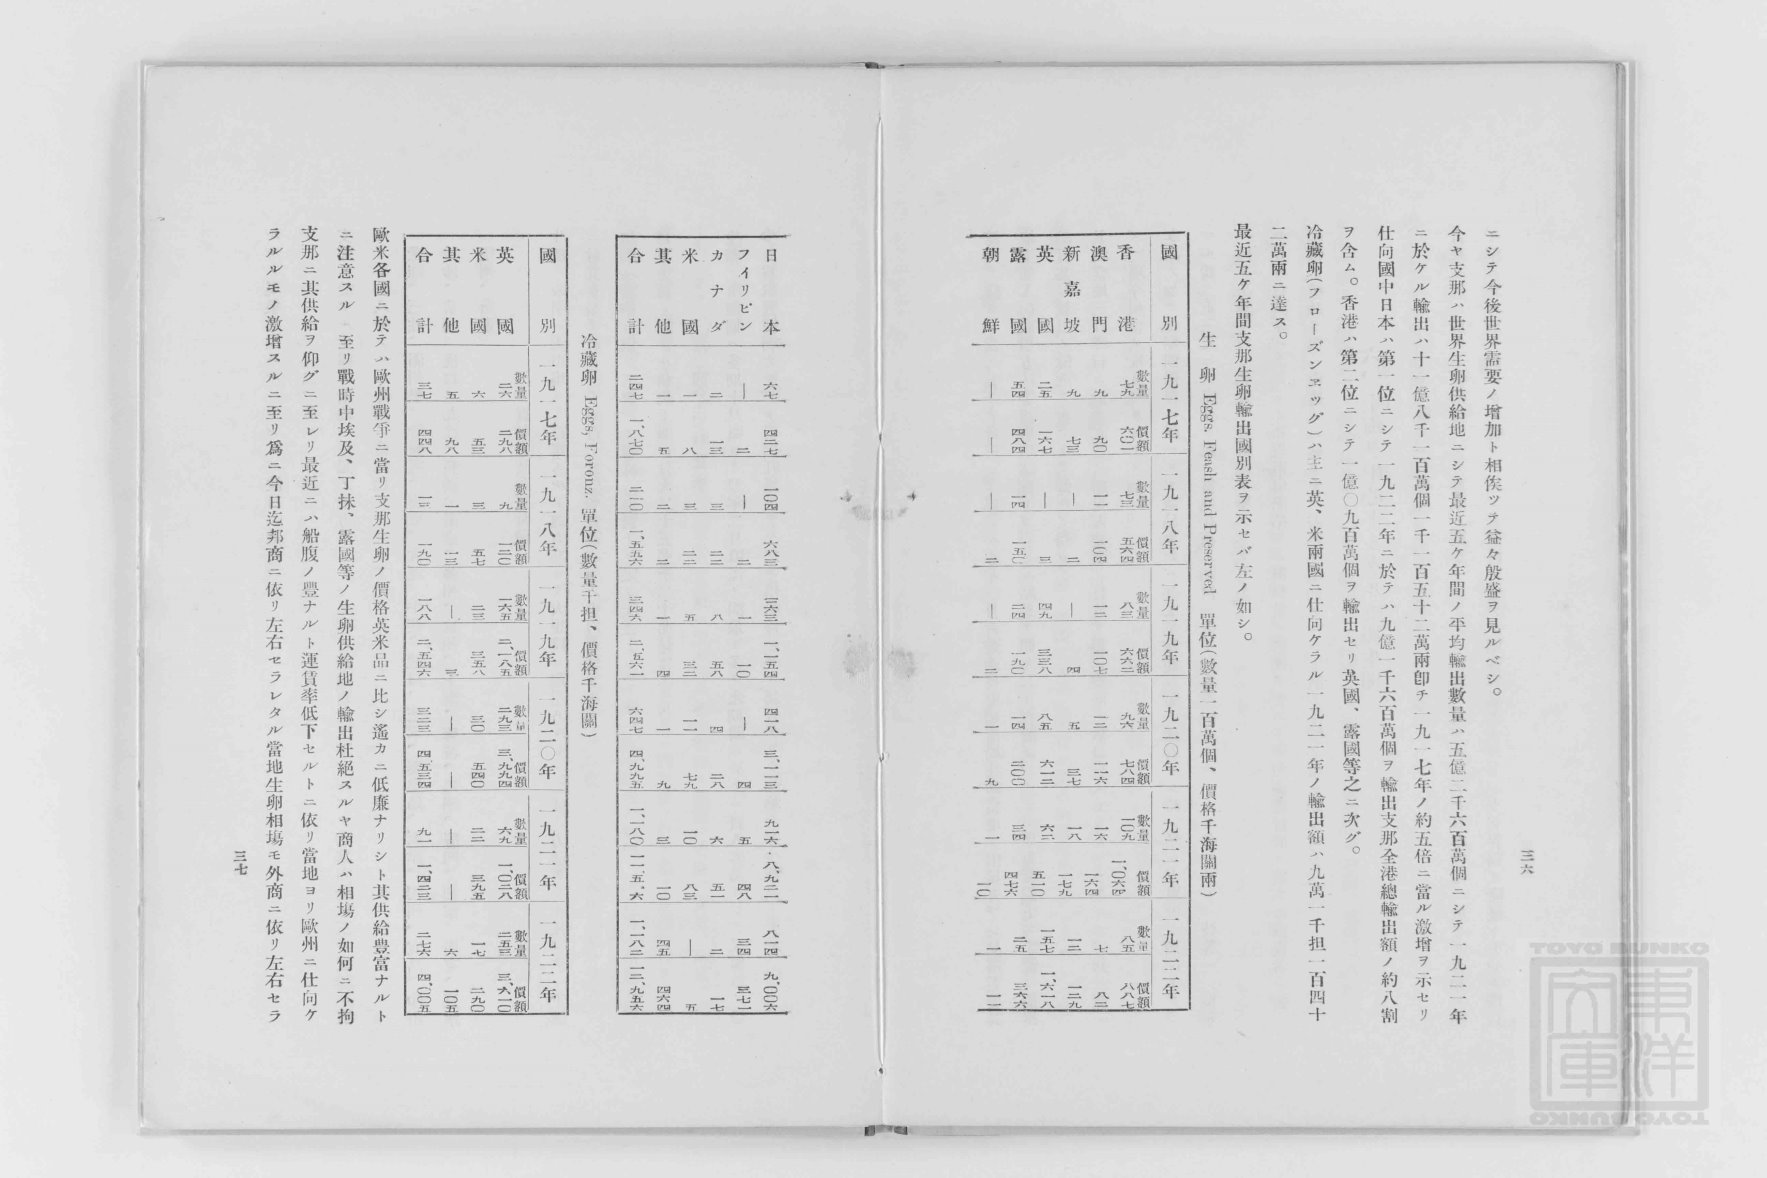 ニシテ今後世界需要ノ増加ト相俟ツテ益々殷盛ヲ見ルベシ。
今ヤ支那ハ世界生卵供給地ニシテ最近五ケ年間ノ平均輸出數量ハ五億二千六百萬個ニシテ一九二一年
ニ於ケル輸出ハ十一億八千一百萬個一千一百五十二萬兩卽チ一九一七年ノ約五倍ニ當ル激增ヲ示セリ
仕向國中日本ハ第一位ニシテ一九二二年ニ於テハ九億一千六百萬個ヲ輸出支那全港總輸出額ノ約八割
ヲ含ム。香港ハ第二位ニシテ一億〇九百萬個ヲ輸出セリ英國、露國等之ニ次グ。
冷藏卵(フローズンエッグ)ハ主ニ英、米兩國ニ仕向ケラル一九二一年ノ輸出額ハ九萬一千担一百四十
二萬兩ニ達ス。
最近五ケ年間支那生卵輸出國別表ヲ示セバ左ノ如シ。
生卵 Eggs, Feash and Preserved 單位(數量一百萬個、價格千海關兩)
國別 一九一七年 一九一八年 一九一九年 一九二〇年 一九二一年 一九二二年
數量 價額 數量 價額 數量 價額 數量 價額 數量 價額 數量 價額
香港 七九 六〇一 七三 五六四 八三 六六二 九六 七八四 一〇九 一、〇六四 八五 八八七
澳門 九 九〇 一一 一〇四 一二 一〇七 一二 一一六 一六 一六四 七 八二
新嘉坡 九 七三 ― 二 ― 四 五 三七 一八 一七九 一二 一二九
英國 二五 一六七 ― 三 四九 三三八 八五 六一二 六二 五一〇 一五七 一、六一八
露國 五四 四八四 一四 一五〇 二四 一九〇 一四 二〇〇 三四 四七六 二五 三六六
朝鮮 ― ― ― 二 ― 二 一 九 一 一〇 一 一二
三六
日本 六七 四二七 一〇四 六八三 二六三 一、一五四 四一八 三、一一三 九一六 八、九二一 八一四 九、〇〇六
フイリピン ― 二 ― 二 一 一〇 ― 四 五 四八 三四 三七一
カナダ 二 一三 三 二二 八 五八 四 二八 六 五一 二 一七
米國 一 八 三 二二 五 三二 一一 七九 一〇 八三 ― 五
其他 一 五 二 二 一 四 一 九 三 一〇 四五 四六四
合計 二四七 一、八七〇 二一〇 一、五五六 三四六 二、五六一 六四七 四、九九五 一、一八〇 一一、五一六 一、一八二 一二、九五六
冷藏卵 Eggs, Foronz. 單位(數量千担、價格千海關)
國別 一九一七年 一九一八年 一九一九年 一九二〇年 一九二一年 一九二二年
數量 價額 數量 價額 數量 價額 數量 價額 數量 價額 數量 價額
英國 二六 二九八 九 一二〇 一六五 二、一八五 二九三 三、九九四 六九 一、〇二八 二五三 三、六一〇
米國 六 五三 三 五七 二三 三五八 三〇 五四〇 二二 三九五 一七 二九〇
其他 五 九八 一 一三 ― 三 ― ― ― ― 六 一〇五
合計 三七 四四八 一三 一九〇 一八八 二、五四六 三二三 四五三四 九一 一、四二三 二七六 四、〇〇五
歐米各國ニ於テハ歐州戰爭ニ當リ支那生卵ノ價格英米品ニ比シ遙カニ低廉ナリシト其供給豊富ナルト
ニ注意スル 至リ戰時中埃及、丁抹、露國等ノ生卵供給地ノ輸出杜絕スルヤ商人ハ相場ノ如何ニ不拘
支那ニ其供給ヲ仰グニ至レリ最近ニハ船腹ノ豐ナルト運賃率低下セルトニ依リ當地ヨリ歐州ニ仕向ケ
ラルルモノ激增スルニ至リ爲ニ今日迄邦商ニ依リ左右セラレタル當地生卵相場モ外商ニ依リ左右セラ
三七
TOYO BUNKO
東洋文庫
TOYO BUNKO